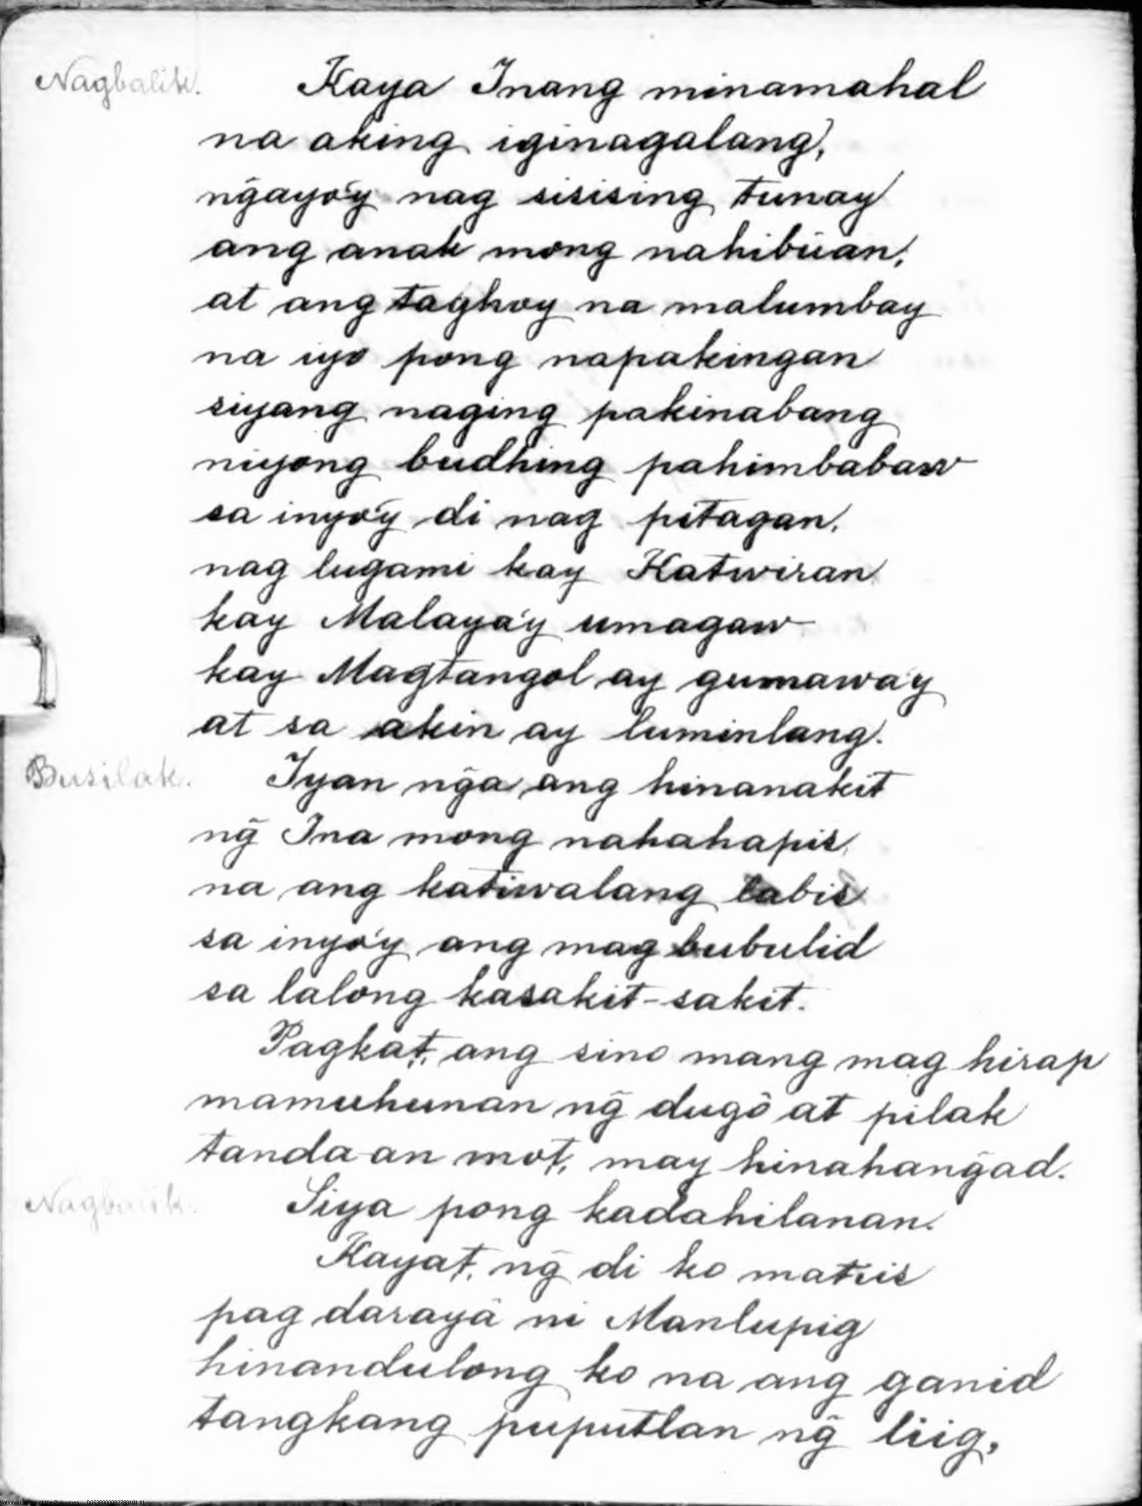 Nagbalik. Kaya Inang minamahal
na aking iginagalang,
ng̃ayo'y nag sisising tunay
ang anak mong nahibúan,
at ang taghoy na malumbay
na iyo pong napakingan
siyang naging pakinabang
niyong budhing pahimbabaw
sa inyo'y di nag pitagan.
nag lugami kay Katwiran
kay Malaya'y umagaw
kay Magtangol ay gumaway
at sa akin ay luminlang.
Busilak. Iyan ng̃a ang hinanakit
ng̃ Ina mong nahahapis
na ang katiwalang labis
sa inyo'y ang mag bubulid
sa lalong kasakit-sakit.
Pagkat, ang sino mang mag hirap
mamuhunan ng̃ dugô at pilak
tanda-an mot, may hinahang̃ad.
Nagbalik. Siya pong kadahilanan.
Kayat, ng̃ di ko matiis
pag darayâ ni Manlupig
hinandulong ko na ang ganid
tangkang puputlan ng̃ liig,